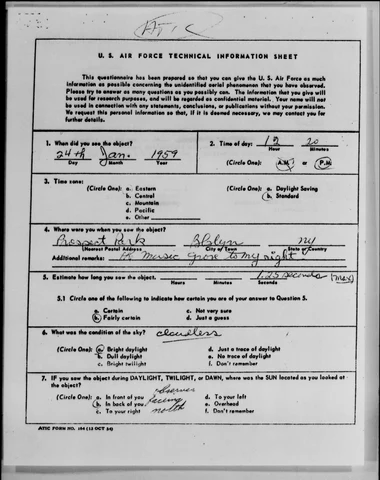 ATIC
U. S. AIR FORCE TECHNICAL INFORMATION SHEET
This questionnaire has been prepared so that you can give the U. S. Air Force as much
information as possible concerning the unidentified aerial phenomenon that you have observed.
Please try to answer as many questions as you possibly can. The information that you give will
be used for research purposes, and will be regarded as confidential material. Your name will not
be used in connection with any statements, conclusions, or publications without your permission.
We request this personal information so that, if it is deemed necessary, we may contact you for
further details.
1. When did you see the object?
24th Jan. 1959
Day Month Year
2. Time of day: 12 20
Hour Minutes
(Circle One): A.M. or P.M.
3. Time zone:
(Circle One): a. Eastern
b. Central
c. Mountain
d. Pacific
e. Other
(Circle One): a. Daylight Saving
b. Standard
4. Where were you when you saw the object?
Prospect Park BBlyn NY
(Nearest Postal Address) City or Town State or Country
Additional remarks: Music Grove to my right
5. Estimate how long you saw the object. 1.25 seconds (max)
Hours Minutes Seconds
5.1 Circle one of the following to indicate how certain you are of your answer to Question 5.
a. Certain c. Not very sure
b. Fairly certain d. Just a guess
6. What was the condition of the sky? cloudless
(Circle One): a. Bright daylight d. Just a trace of daylight
b. Dull daylight e. No trace of daylight
c. Bright twilight f. Don't remember
7. IF you saw the object during DAYLIGHT, TWILIGHT, or DAWN, where was the SUN located as you looked at
the object?
observer
(Circle One): a. In front of you facing d. To your left
b. In back of you north e. Overhead
c. To your right f. Don't remember
ATIC FORM NO. 164 (13 OCT 54)